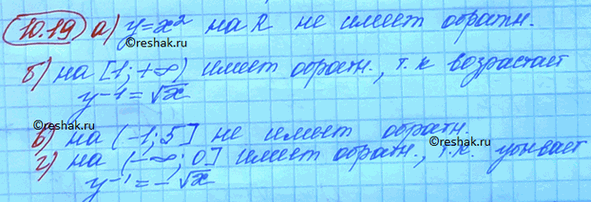 10.19 а) y=x² на R не имеет обратн.
©reshak.ru
б) на [1;+∞) имеет обратн., т.к возрастает
y⁻¹ = √x
©reshak.ru
в) на (-1;5] не имеет обратн.
г) на (-∞;0] имеет обратн., т.к. убывает
y⁻¹ = -√x
©reshak.ru